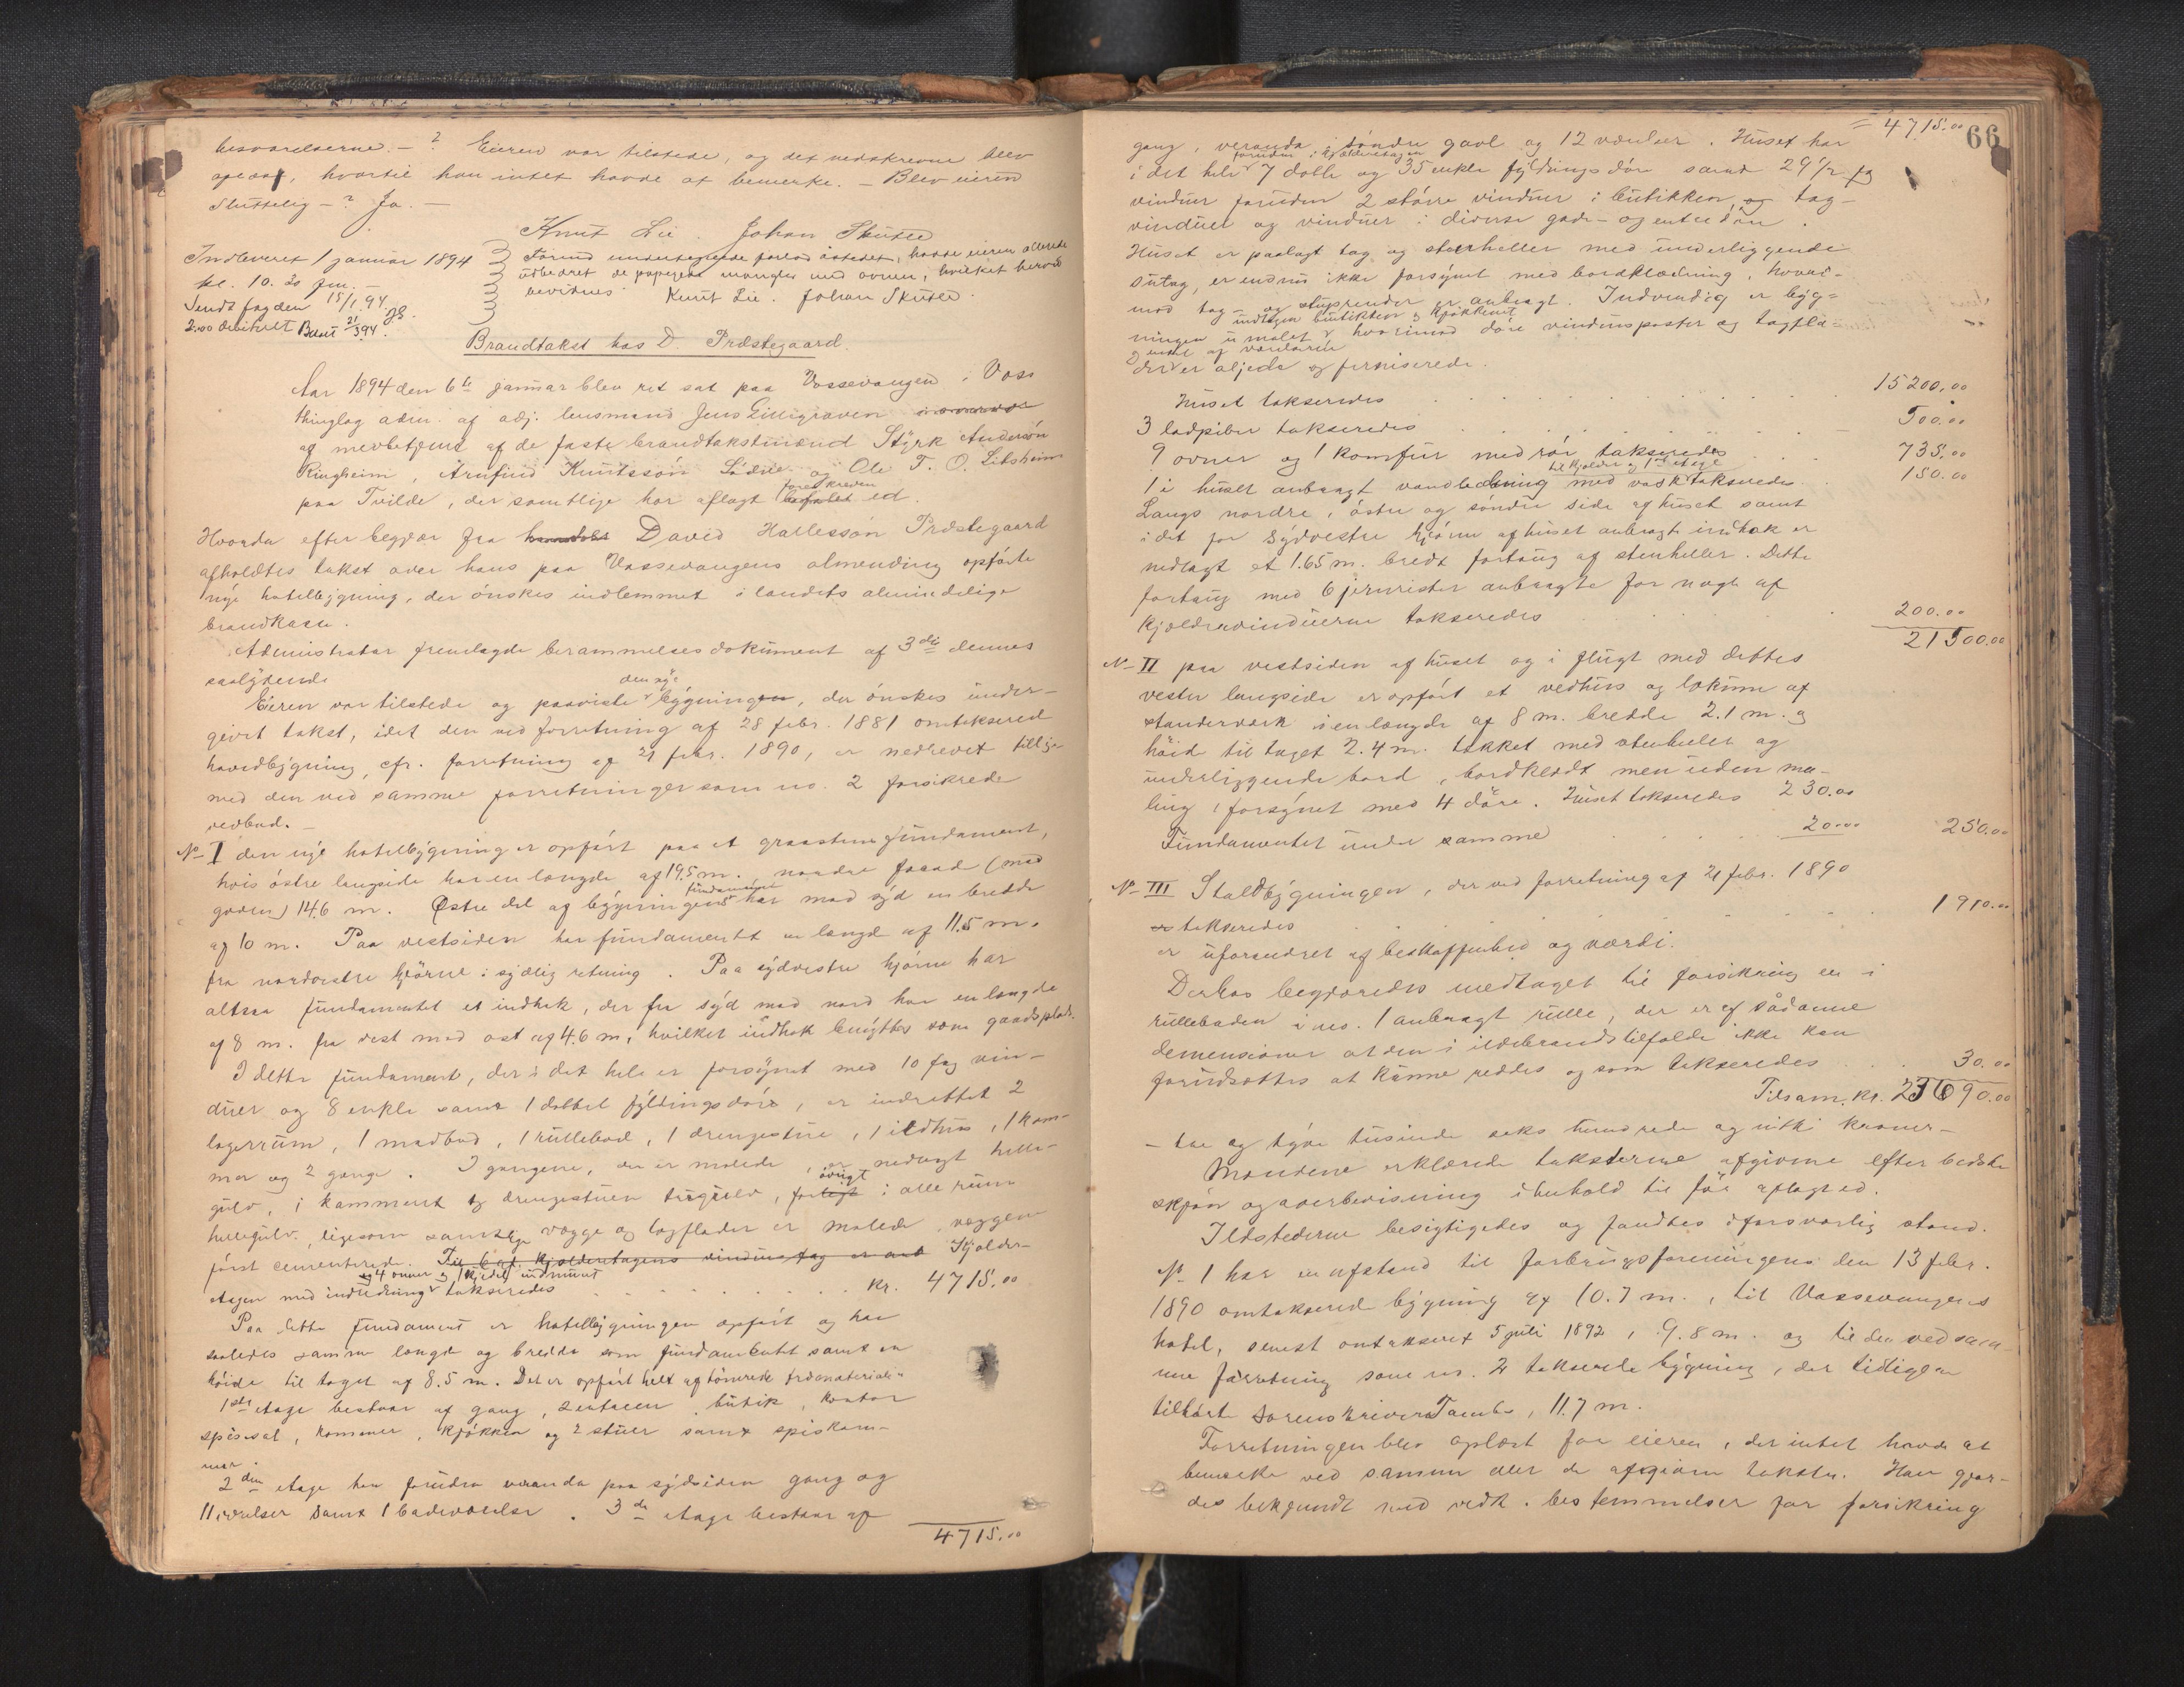 besvarelserne. – ? Eieren var tilstede, og det nedskrevne blev
oplæst, hvortil han intet havde at bemerke. – Blev eieren
Sluttelig – ? Ja. –
Knut Lie. Johan Skutle
Indleveret 1 januar 1894
kl. 10.30 fm. –
Sendt fogden 15/1 94
2.00 Betalt 21/3 94.
Forinden undertegnede forlod åstedet, havde eieren allerede
udbedret de papegede mangler med ovnen, hvilket herved
bevidnes Knut Lie. Johan Skutle.
Brandtakst hos D. Præstegaard.
Aar 1894 den 6te januar blev ret sat paa Vossevangen i Voss
thinglag adm. af adj. lensmand Jens Gilligraven
og medbetjent af de faste brandtakstmænd Styrk Andersön
Ringheim, Arnfind Knutssön Lödve og Ole T. O. Lidsheim
paa Tvilde, der samtlige har aflagt foreskreven ed.
Hvorda efter begjær fra David Hallessön Præstegaard
afholdtes takst over hans paa Vossevangens almending opförte
nye hotelbygning, der önskes indlemmet i landets almindelige
brandkasse.
Administrator fremlagde berammelsesdokument af 3die dennes
saalydende
Eieren var tilstede og paaviste den nye bygning, der önskes under-
givet takst, idet den ved forretning af 28 febr. 1881 omtaksered
hovedbygning, cfr. forretning af 21 febr. 1890, er nedrevet tillige
med den ved samme forretninger som no. 2 forsikrede
vedbod. –
No I den nye hotelbygning er opfört paa et graastensfundament,
hvis östre langside har en længde af 19.5 m. nordre facade (mod
gaden) 14.6 m. Østre del af bygningens fundament har mod syd en bredde
af 10 m. Paa vestsiden har fundamentet en længde af 11.5 m.
fra nordvestre hjörne i sydlig retning. Paa sydvestre hjörne har
altsaa fundamentet et indhak, der fra syd mod nord har en længde
af 8 m. fra vest mod ost af 4.6 m, hvilket indhak benyttes som gaardsplads.
I dette fundament, der i det hele er forsynet med 10 fag vin-
duer og 8 enkle samt 1 dobbel fyldingsdöre, er indrettet 2
lagerrum, 1 madbod, 1 rullebod, 1 drengestue, 1 ildhus, 1 kam-
mer og 2 gange. I gangene, der er malede, er nedlagt helle-
gulv, i kammeret og drengestuen trægulv, forövrigt i alle rum
hellegulv, ligesom samtlige vægge og tagflader er malede, væggene
först cementerede. Til 6 af kjælderetagens vinduesfag er anb Kjælder-
etagen med indredning og 4 ovner og 1 kjedel indmuret takseredes . . . . Kr. 4715.00
Paa dette fundament er hotelbygningen opfört og har
saaledes samme længde og bredde som fundamentet samt en
höide til taget af 8.5 m. Det er opfört helt af tömrede træmateriale.
1ste etage bestaar af gang, 2 entreer, butik, kontor
spisesal, kammer, kjökken og 2 stuer samt spiskam-
mer.
2den etage har foruden veranda paa sydsiden gang og
11 værelser samt 1 badeværelse. 3de etage bestaar af
4715.00
66
= 4715.00
gang, veranda i söndre gavl og 12 værelser. Huset har
i det hele foruden i kjælderetagen 7 dolle og 35 enkle fyldingsdöre samt 29 1/2 fag
vinduer foruden 2 större vinduer i butikken, og tag-
vinduer og vinduer i diverse gade- og entredöre.
Huset er paalagt tag og stenheller med underliggende
sutag, er endnu ikke forsynet med bordklædning, hvori-
mod tag- og stuprender er anbragt. Indvendig er byg-
ningen undtagen butikken & kjökkenet umalet, hvorimod döre vinduesposter og tagfla-
der er oljede og ferniserede.
Huset takseredes . . . . 15200,00
3 ladpiber takseredes . . . . 500.00
9 ovner og 1 komfur med rör takseredes . . . 735.00
1 i huset anbragt vandledning med vask til kjælder og 1ste etage takseredes . 150.00
Langs nordre, östre og söndre side af huset samt
i det for sydvestre hjörne af huset anbragte indhak er
nedlagt et 1.65 m. bredt fortaug af stenheller. Dette
fortaug med 6 jernrister anbragte for nogle af
kjældervinduerne takseredes . . . 200.00
21500.00
No II paa vestsiden af huset og i flugt med dettes
vestre langside er opfört et vedhus og lokum af
standerværk i en længde af 8 m. bredde 2.1 m. og
höid til taget 2.4 m. tækket med stenheller og
underliggende bord, bordklædt men uden ma-
ling, forsynet med 4 döre. Huset takseredes 230.00
Fundamentet under samme . . . 20.00 250.00
No III Staldbygningen, der ved forretning af 21 febr. 1890
takseredes . . . . 1910.00
er uforandret af beskaffenhed og værdi.
Derhos begjæredes medtaget til forsikring en i
rulleboden i no. 1 anbragt rulle, der er af sådanne
demensioner at den i ildebrandstilfælde ikke kan
forudsættes at kunne reddes og som takseredes . . 30.00
Tilsam. kr. 23690.00
– tre og tyve tusinde seks hundrede og nitti kroner –
Mændene erklærede taksterne afgivne efter bedste
skjön og overbevisning i henhold til för aflagt ed.
Ildstederne besigtigedes og fandtes i forsvarlig stand.
No 1 har en afstand til forbrugsforeningens den 13 febr.
1890 omtakserede bygning af 10.7 m., til Vossevangens
hotel, senest omtakseret 5 juli 1892, 9.8 m. og til den ved sam-
me forretning som no. 2 takserede bygning, der tidligere
tilhörte Sorenskriver Tambs, 11.7 m.
Forretningen blev oplæst for eieren, der intet havde at
bemerke ved samme eller de afgivne takster. Han gjor-
des bekjendt med vedk. bestemmelser for forsikring